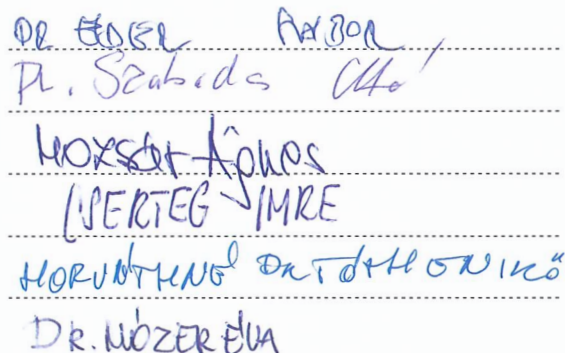 DR ÉDER
Dr. Szabados Ottó
Mozsár Ágnes
CSERTEG IMRE
HORVÁTHNÉ DR TÓTH ENIKŐ
DR. MÓZER ÉVA